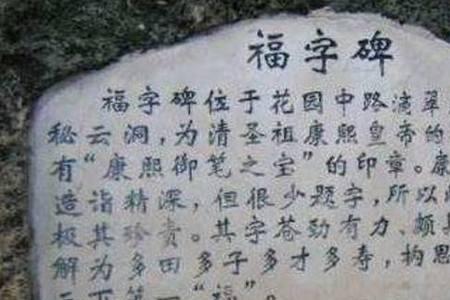 福字碑
福字碑位于花园中路滴翠
秘云洞，为清圣祖康熙皇帝的
有“康熙御笔之宝”的印章。康
造诣精深，但很少题字，所以
极其珍贵。其字苍劲有力、颇具
解为多田多子多才多寿，构思
“福”。